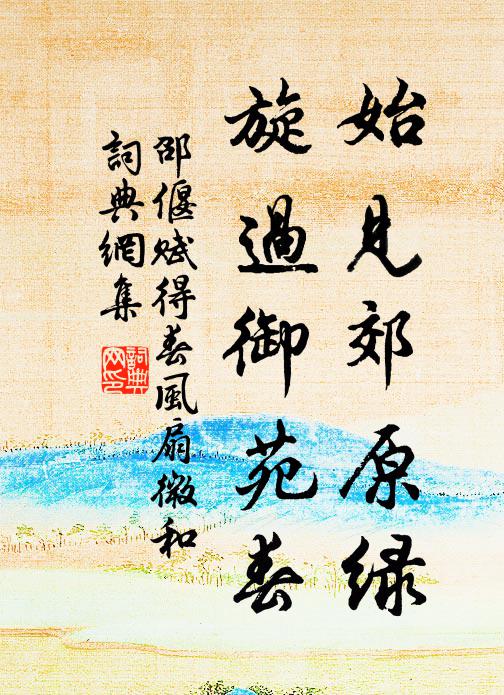 始見郊原綠
旋過御苑春
邵偃賦得春風扇微和
詞典網集
詞典
网印